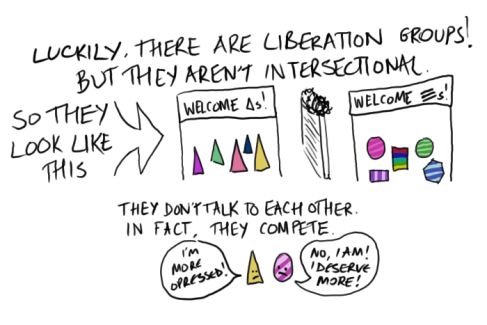 LUCKILY, THERE ARE LIBERATION GROUPS!
BUT THEY AREN'T INTERSECTIONAL.
SO THEY
LOOK LIKE
THIS
WELCOME Δs!
WELCOME ☰s!
THEY DON'T TALK TO EACH OTHER.
IN FACT, THEY COMPETE.
I'M
MORE
OPRESSED!
NO, I AM!
I DESERVE
MORE!